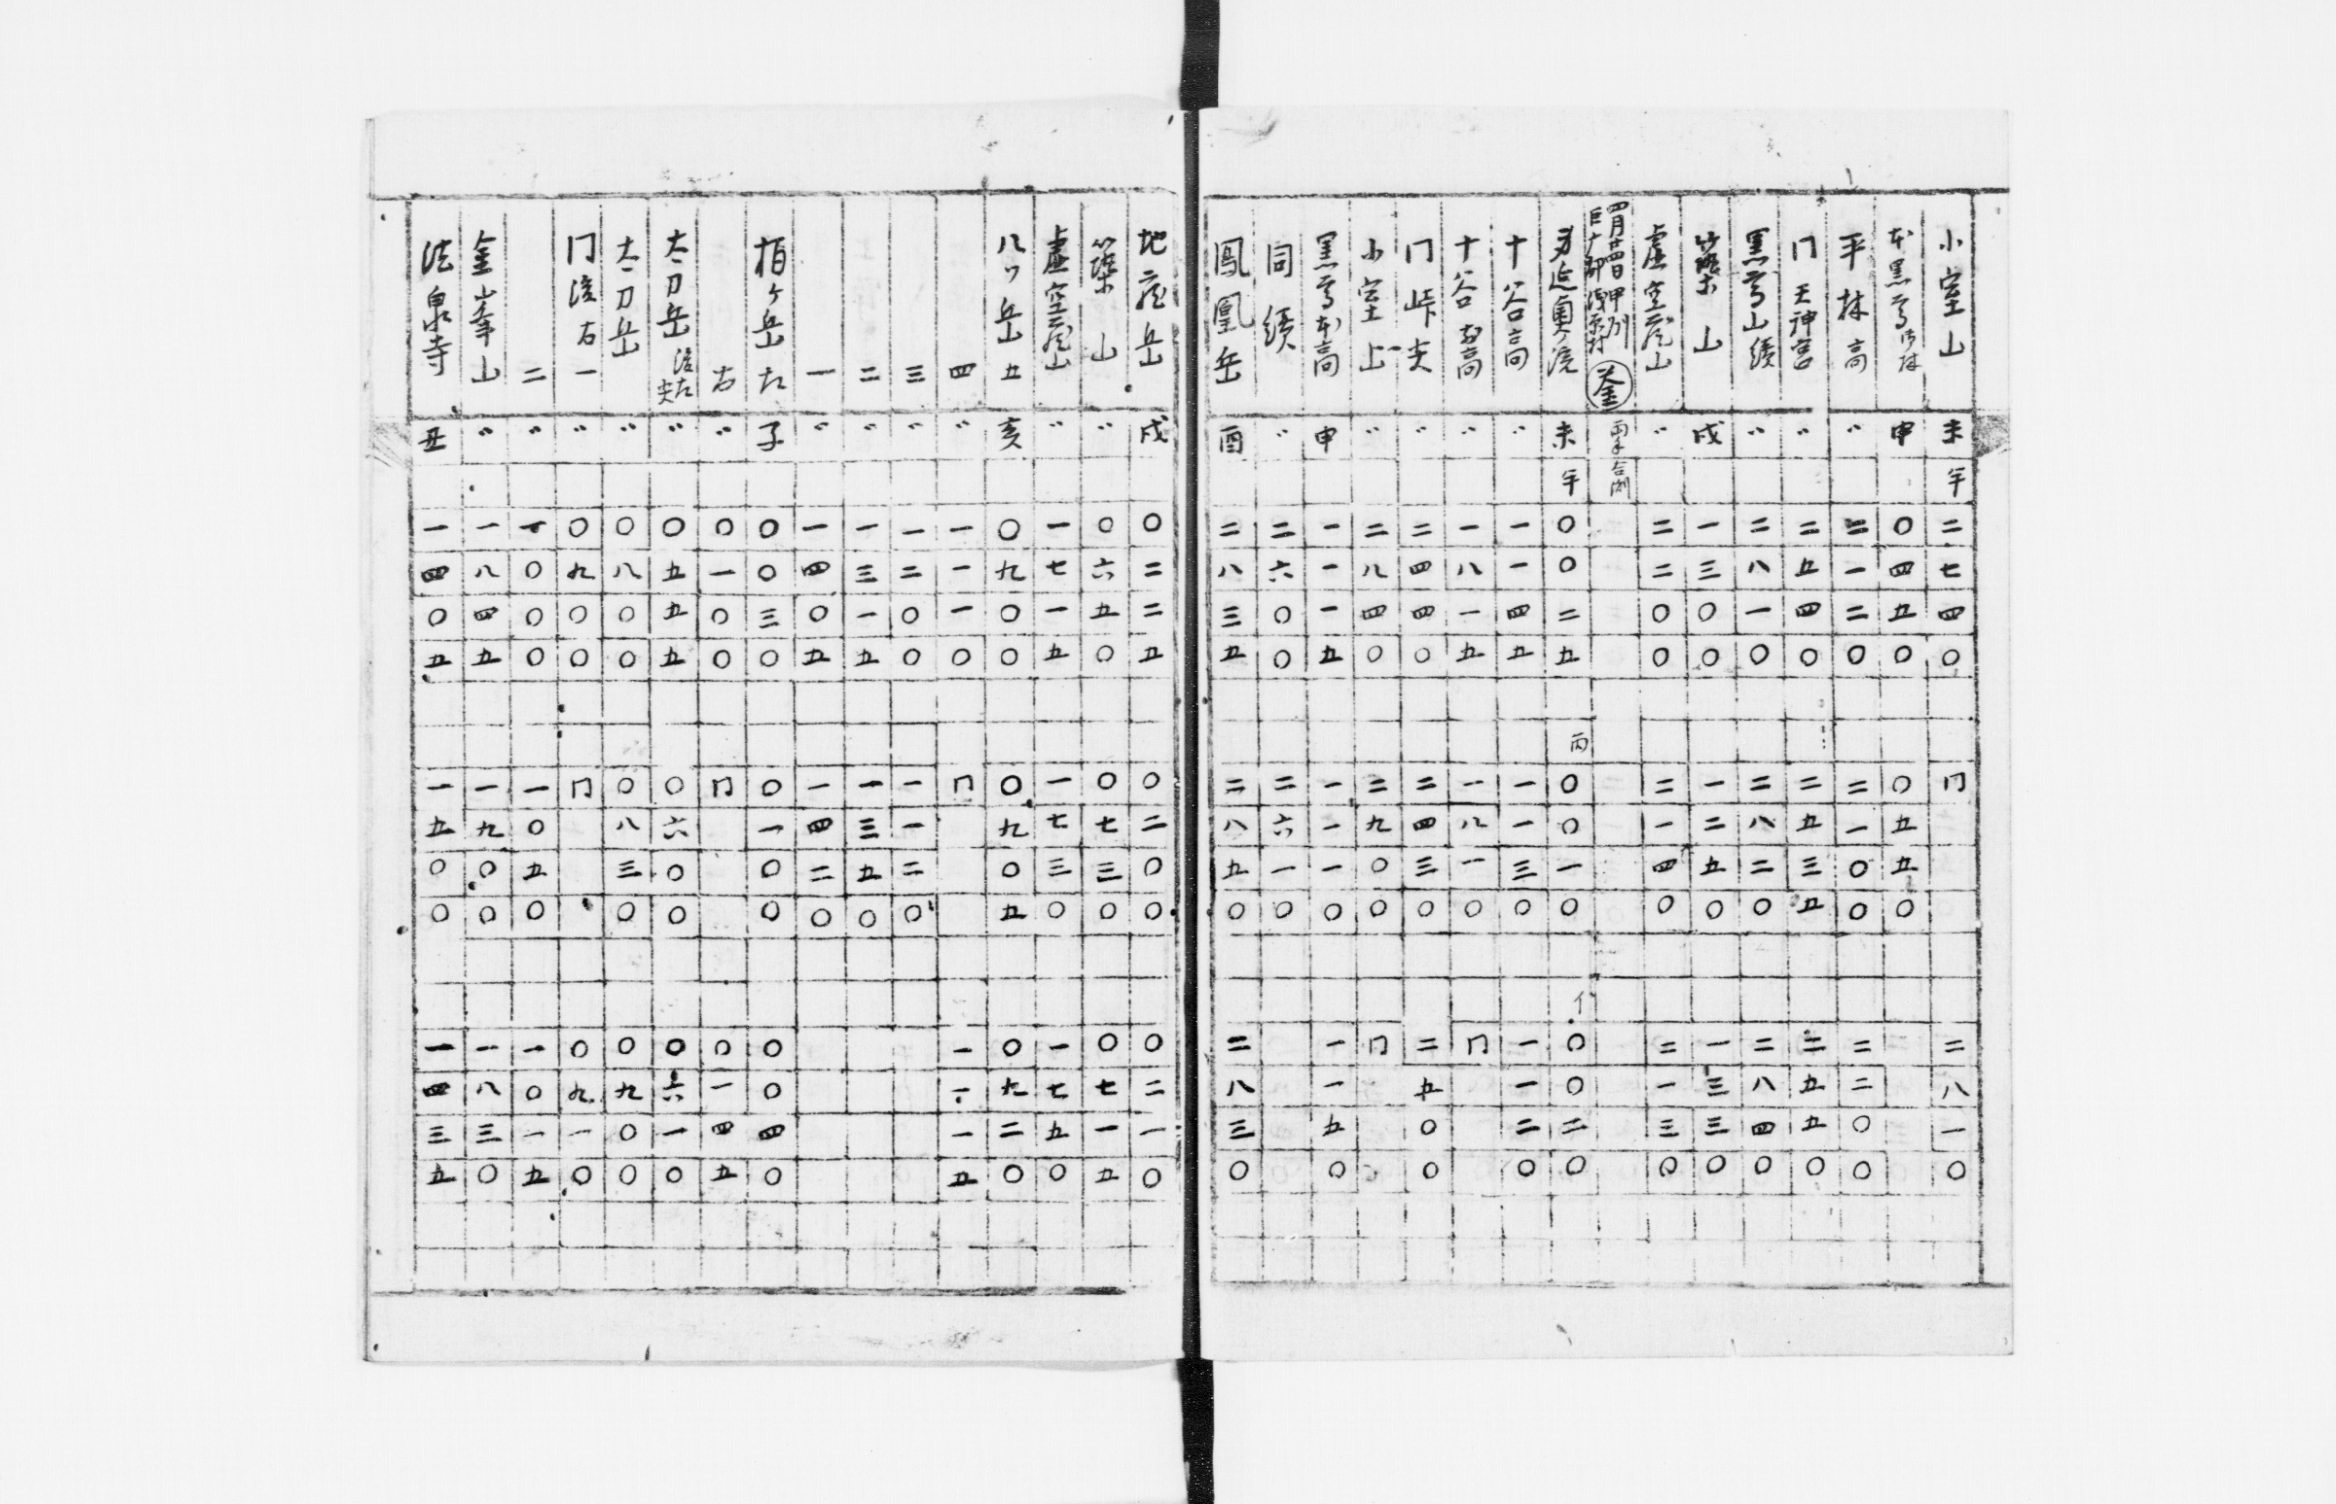 小室山 未 半 二七四〇 〃 二八一〇
本黒 申 〇四五〇 〇五五〇
平林高 〃 二一二〇 二一〇〇 二二〇〇
〃天神宮 〃 二五四〇 二五三五 二五五〇
黒山續 〃 二八一〇 二八二〇 二八四〇
築山 戌 一三〇〇 一二五〇 一三三〇
虚空蔵山 〃 二二〇〇 二一四〇 二一三〇
四月廿四日 甲州
巨郡村 釜
身延奥ノ院 未 半 〇〇二五 丙 〇〇一〇 〇〇二〇
十谷高 〃 一一四五 一一三〇 一一二〇
十谷高 〃 一八一五 一八一〇 〃
〃峠 〃 二四四〇 二四三〇 二五〇〇
小室上 〃 二八四〇 二九〇〇 〃
黒本高 申 一一一五 一一一〇 一一五〇
同續 〃 二六〇〇 二六一〇
鳳凰岳 酉 二八三五 二八五〇 二八三〇
地蔵岳 戌 〇二二五 〇二〇〇 〇二一〇
築山 〃 〇六五〇 〇七三〇 〇七一五
虚空蔵山 〃 一七一五 一七三〇 一七五〇
八ヶ岳 五 亥 〇九〇〇 〇九〇五 〇九二〇
四 〃 一一一〇 〃 一二一五
三 〃 一二〇〇 一一二〇
二 〃 一三一五 一三五〇
一 〃 一四〇五 一四二〇
指ヶ岳 左 子 〇〇三〇 〇一〇〇 〇〇四〇
右 〃 〇一〇〇 〃 〇一四五
太刀岳 左 〃 〇五五五 〇六〇〇 〇六一〇
太刀岳 〃 〇八〇〇 〇八三〇 〇九〇〇
〃 右一 〃 〇九〇〇 〃 〇九一〇
二 〃 一〇〇〇 一〇五〇 一〇一五
金峯山 〃 一八四五 一九〇〇 一八三〇
法泉寺 丑 一四〇五 一五〇〇 一四三五